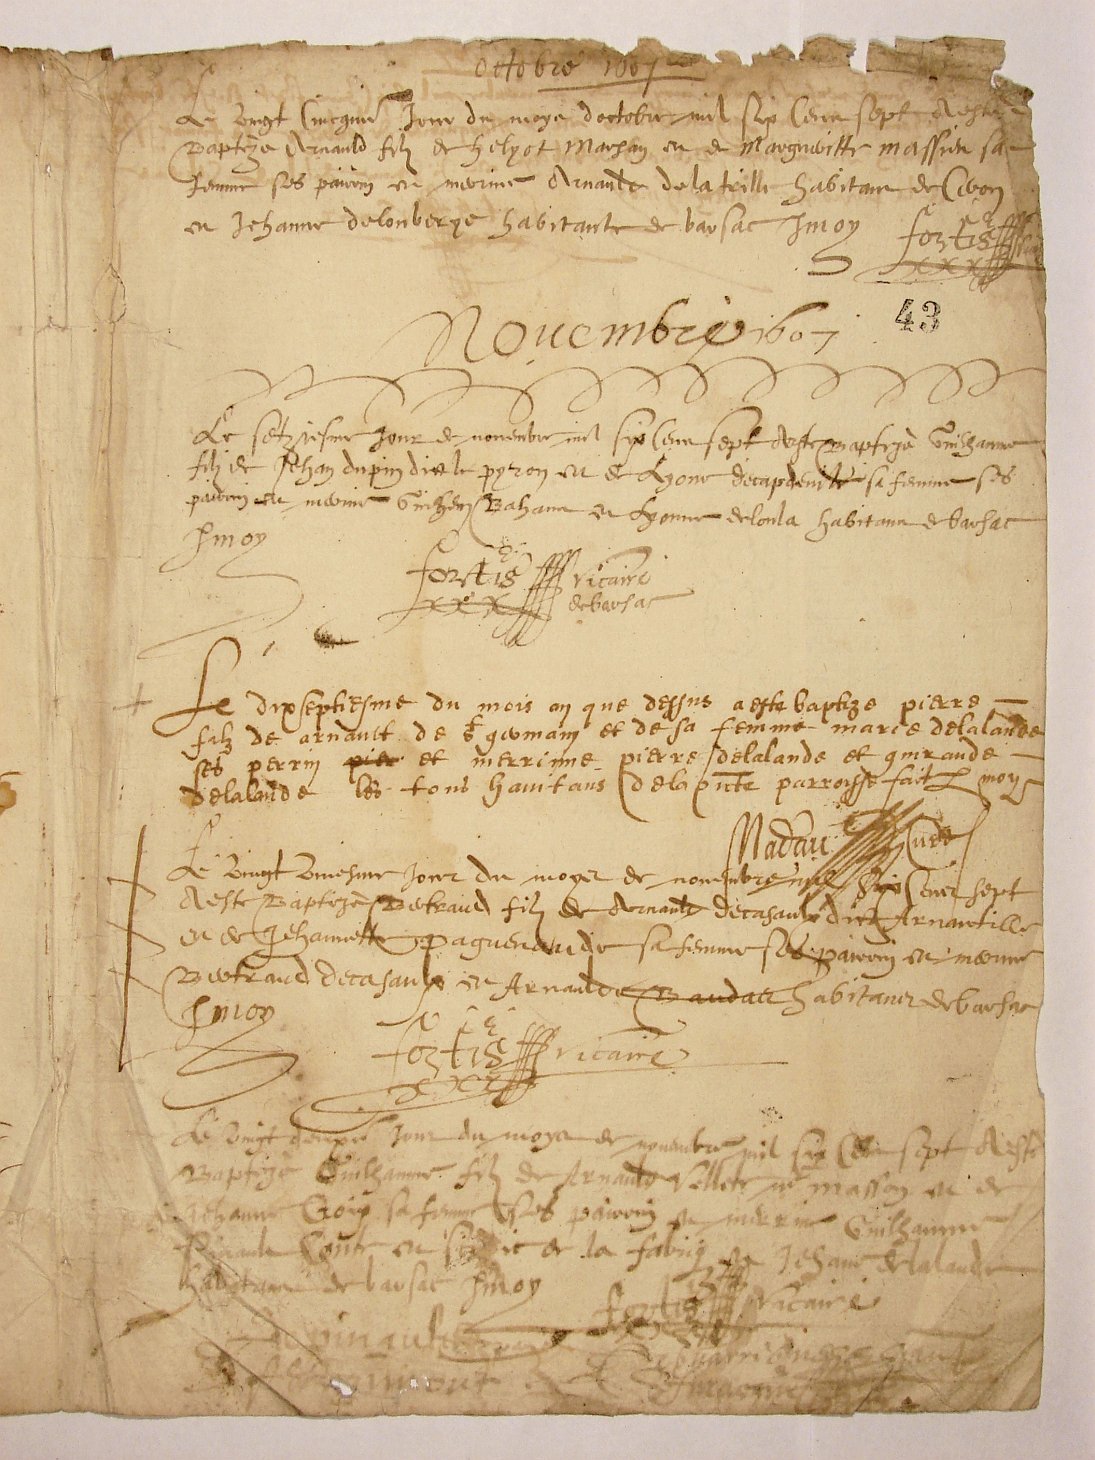 Octobre 1607
Le vingt cinquie Jour du moys doctobre mil six Cens sept A este
Baptizé Arnauld filz de helyot Marsan et de Margueritte massieu sa
femme ses pairin et merine Arnauld de latrille habitant de
et Jehanne delouberye habitante de barsac Pmoy fortis
43
Novembre 1607
Le setziesme Jour de novembre mil six Cens sept Aeste Baptizé Guilhaume
filz de Jehan dupin dit le pyron et de Lyone decapdeville sa femme ses
pairin et merine Guilhem Bahans et Lyonne deloula habitans de barsac
Pmoy
fortis vicaire
de barsac
Le dixseptiesme du mois an que dessus a este baptize pierre
filz de arnault de st et de sa femme marie delalande
ses perrin pier et merrinne pierre delalande et guiraude
delalande les tous havitans de la pnte parroisse fait p moy
Nadau Cure
Le vingt uniesme Jour du moys de novembre mil Six Cens sept
Aeste Baptizé Bertraud filz de Arnauld decasaulx dict Arnautille
et de Jehannette paguenaude sa femme ses pairin et merine
Bertraud decasaulx et Arnaulde Baudau habitans de barsac
Pmoy
fortis vicaire
Le vingt deuxie Jour du moys de novembre mil six Cens sept A esté
Baptizé Guilhaume filz de Arnauld vellete me masson et de
Jehanne sa femme Ses pairin et merrine Guilhaume
et sindic de la fabriq et Jehane delalande
habitans de barsac Pmoy
fortis vicaire